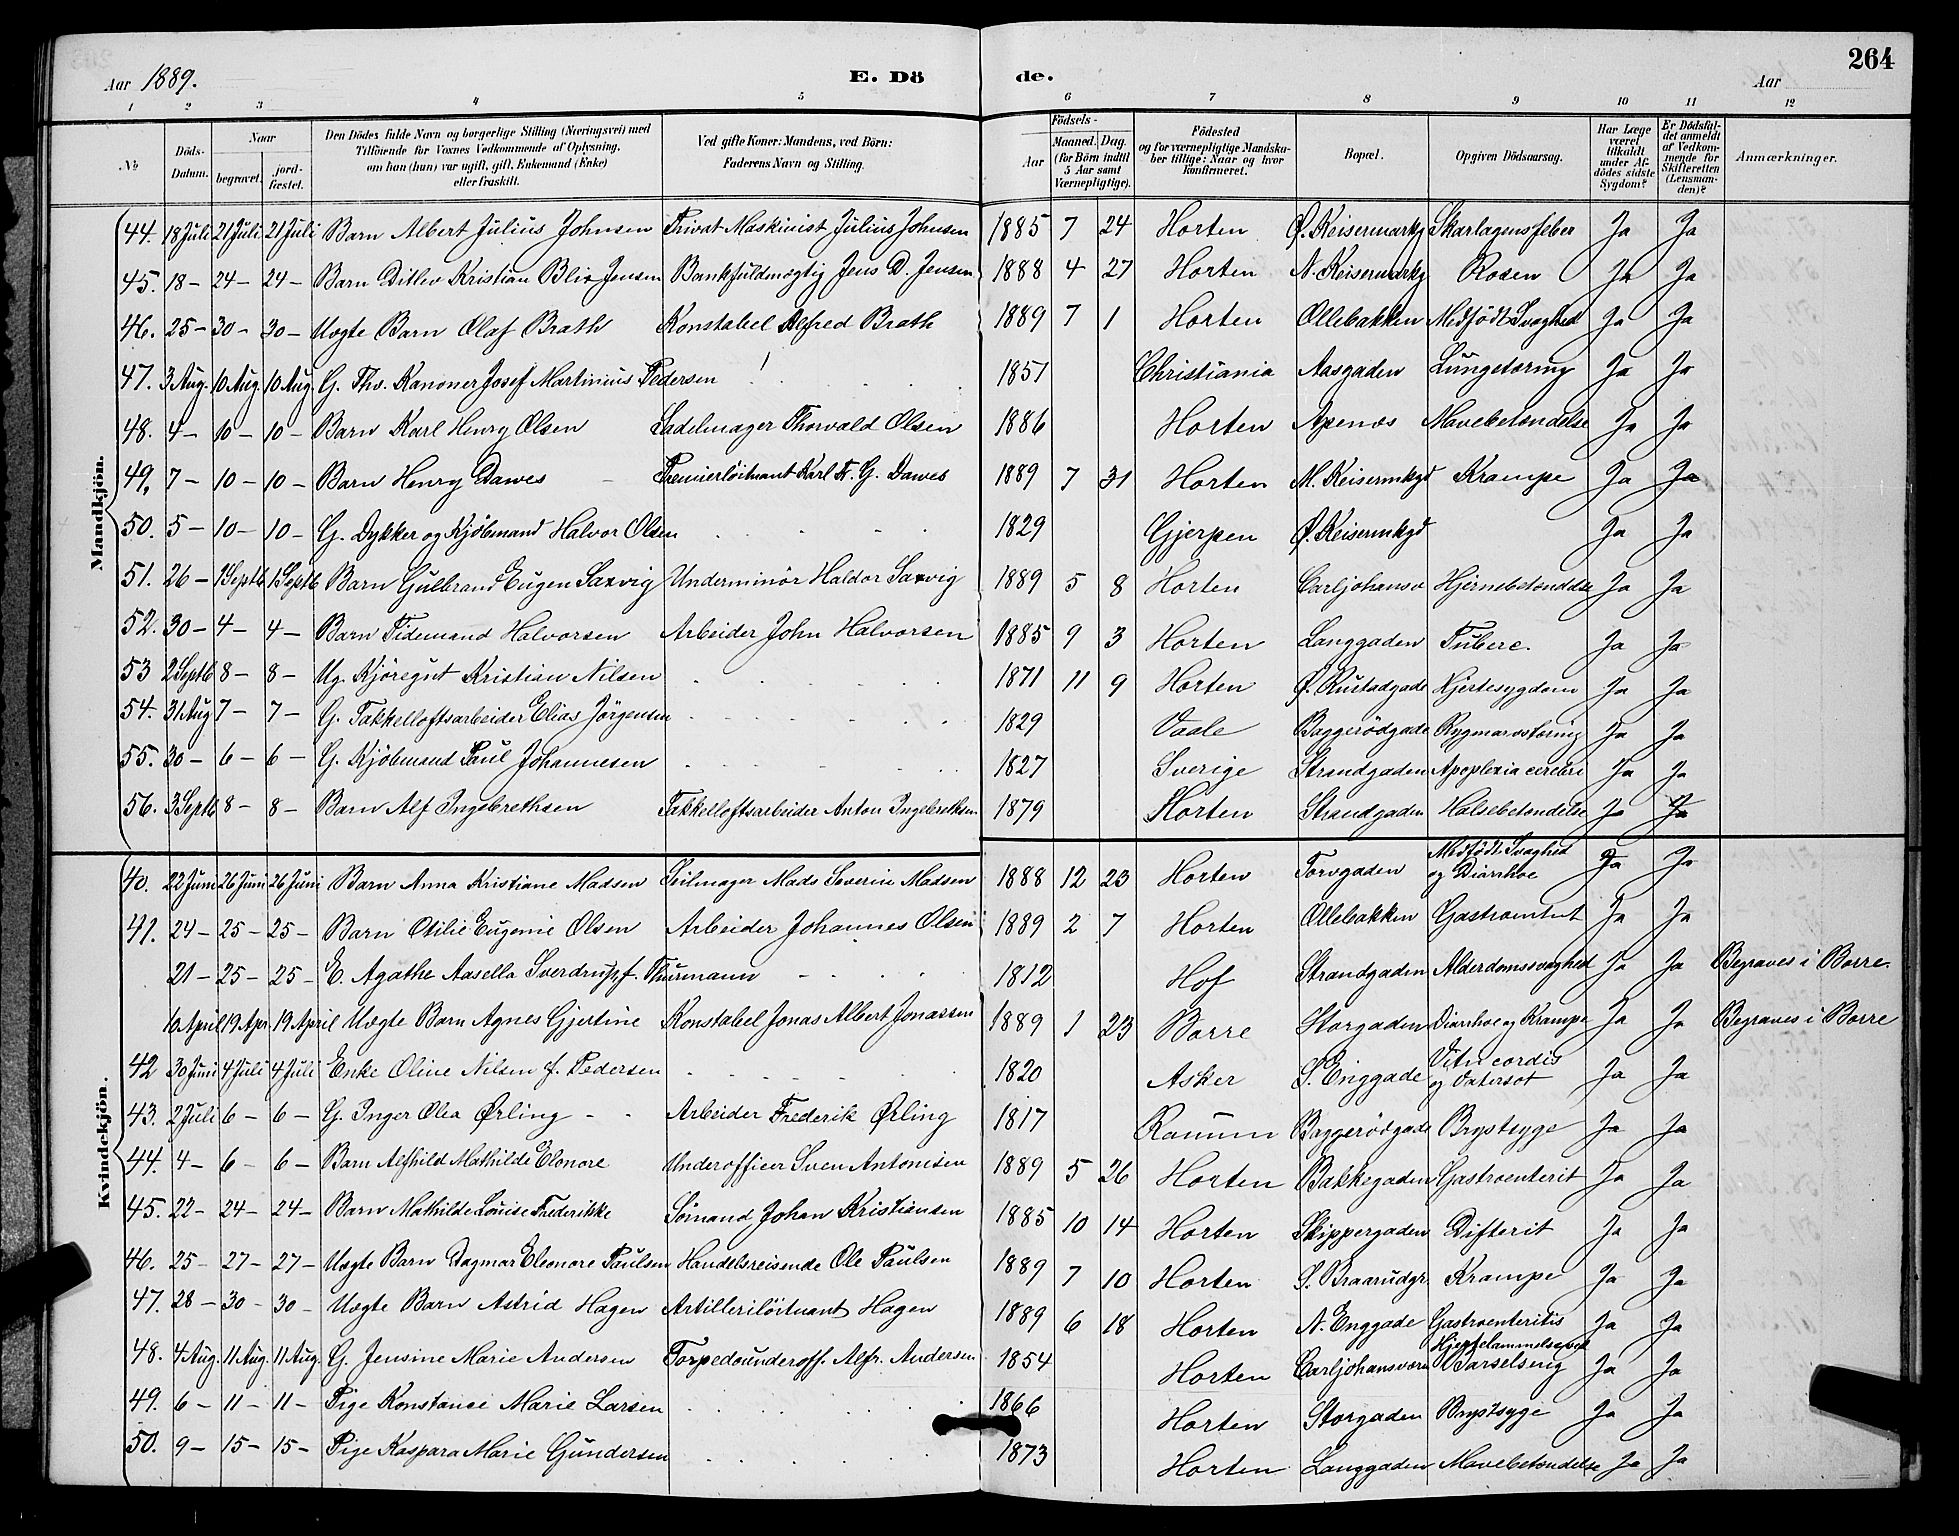 264
Aar 1889.
E. Dö
de.
Aar
1 2 3 4 5 6 7 8 9 10 11 12
No
Döds-Datum.
Naar begravet.
jord-fæstet.
Den Dödes fulde Navn og borgerlige Stilling (Næringsvei) med Tilföiende for Voxnes Vedkommende af Oplysning, om han (hun) var ugift, gift, Enkemand (Enke) eller fraskilt.
Ved gifte Koner: Mandens, ved Börn: Faderens Navn og Stilling.
Födsels-
Aar
Maaned. Dag.
(for Börn indtil 5 Aar samt Værnepligtige).
Födested og for værnepligtige Mandskaber tillige: Naar og hvor konfirmeret.
Bopæl.
Opgiven Dödsaarsag.
Har Læge været tilkaldt under Afdödes sidste Sygdom?
Er Dödsfaldet anmeldt af Vedkommende for Skifteretten (Lensmanden)?
Anmærkninger.
Mandkjön.
44. 18 Juli 21 Juli 21 Juli Barn Albert Julius Johnsen Privat Maskinist Julius Johnsen 1885 7 24 Horten Ø. Keisermarkg Skarlagensfeber Ja Ja
45. 18 - 24 - 24 - Barn Ditlev Kristian Blix Jensen Bankfuldmægtig Jens D. Jensen 1888 4 27 Horten N. Keisermarkg Rosen Ja Ja
46. 25 - 30 - 30 - Uægte Barn Olaf Brath Konstabel Alfred Brath 1889 7 1 Horten Ollebakken Medfødt Svaghed Ja Ja
47. 3 Aug. 10 Aug. 10 Aug. G. Ths. Kanoner Josef Martinius Pedersen 1851 Christiania Aasgaden Lungetæring Ja Ja
48. 4 - 10 - 10 - Barn Karl Henry Olsen Sadelmager Thorvald Olsen 1886 Horten Apenæs Mavebetændelse Ja Ja
49. 7 - 10 - 10 - Barn Henry Dawes Premierløitnant Karl Fr. G. Dawes 1889 7 31 Horten M. Keisermkgd Krampe Ja Ja
50. 5 - 10 - 10 - G. Dykker og Kjöbmand Halvor Olsen 1829 Gjerpen Ø. Keisermkgd Ja Ja
51. 26 - 1 Septb 1 Septb Barn Gulbrand Eugen Saxvig Underminör Haldor Saxvig 1889 5 8 Horten Carljohansv Hjernebetændelse Ja Ja
52. 30 - 4 - 4 - Barn Tidemand Halvorsen Arbeider John Halvorsen 1885 9 3 Horten Langgaden Tuberc. Ja Ja
53 2 Septb 8 - 8 - Ug. Kjöregut Kristian Nilsen 1871 11 9 Horten Ø. Rustadgade Hjertesygdom Ja Ja
54. 31 Aug 7 - 7 - G. Takkelloftsarbeider Elias Jörgensen 1829 Vaale Baggerödgade Rygmarvstæring Ja Ja
55. 30 - 6 - 6 - G. Kjöbmand Paul Johannesen 1827 Sverige Strandgaden Apoplexia cerebri Ja Ja
56. 3 Septb 8 - 8 - Barn Alf Ingebrethsen Takkelloftsarbeider Anton Ingebrethsen 1879 Horten Strandgaden Halsebetændelse Ja Ja
Kvindekjön.
40. 22 Juni 26 Juni 26 Juni Barn Anna Kristiane Madsen Seilmager Mads Severin Madsen 1888 12 23 Horten Torvgaden Medfödt Svaghed og Diarrhoe Ja Ja
41. 24 - 25 - 25 - Barn Otilie Eugenie Olsen Arbeider Johannes Olsen 1889 2 7 Horten Ollebakken Gastroentrit Ja Ja
21 - 25 - 25 - E. Agathe Aasella Sverdrup f. Thurmann 1812 Hof Strandgaden Alderdomssvaghed Ja Ja Begraves i Borre.
10 April 19 Apr. 19 April Uægte Barn Agnes Gjertine Konstabel Jonas Albert Jonassen 1889 1 23 Borre Storgaden Diarrhoe og Krampe Ja Ja Begraves i Borre
42 30 Juni 4 Juli 4 Juli Enke Oline Nilsen f. Pedersen 1820 Asker S. Enggade Vitu cordis og Vatersot Ja Ja
43. 2 Juli 6 - 6 - G. Inger Olea Ørling Arbeider Frederik Ørling 1817 Raaum Baggerödgade Brystsyge Ja Ja
44. 4 - 6 - 6 - Barn Alfhild Mathilde Elonore Underofficer Sven Antonisen 1889 5 26 Horten Bakkegaden Gastroenterit Ja Ja
45. 22 - 24 - 24 - Barn Mathilde Louise Frederikke Sömand Johan Kristiansen 1885 10 14 Horten Skippergaden Difterit Ja Ja
46. 25 - 27 - 27 - Uægte Barn Dagmar Eleonore Paulsen Handelsreisende Ole Paulsen 1889 7 10 Horten S. Braarudgr. Krampe Ja Ja
47. 28 - 30 - 30 - Uægte Barn Astrid Hagen Artilleriløitnant Hagen 1889 6 18 Horten N. Enggade Gastroenteritis Ja Ja
48. 4 Aug. 11 Aug. 11 Aug. G. Jensine Marie Andersen Torpedounderoff. Alfr. Andersen 1854 Horten Carljohansværn Hjertelammelse Barselseng Ja Ja
49. 6 - 11 - 11 - Pige Konstance Marie Larsen 1866 Horten Storgaden Brystsyge Ja Ja
50. 9 - 15 - 15 - Pige Kaspara Marie Gundersen 1873 Horten Langgaden Mavebetændelse Ja Ja